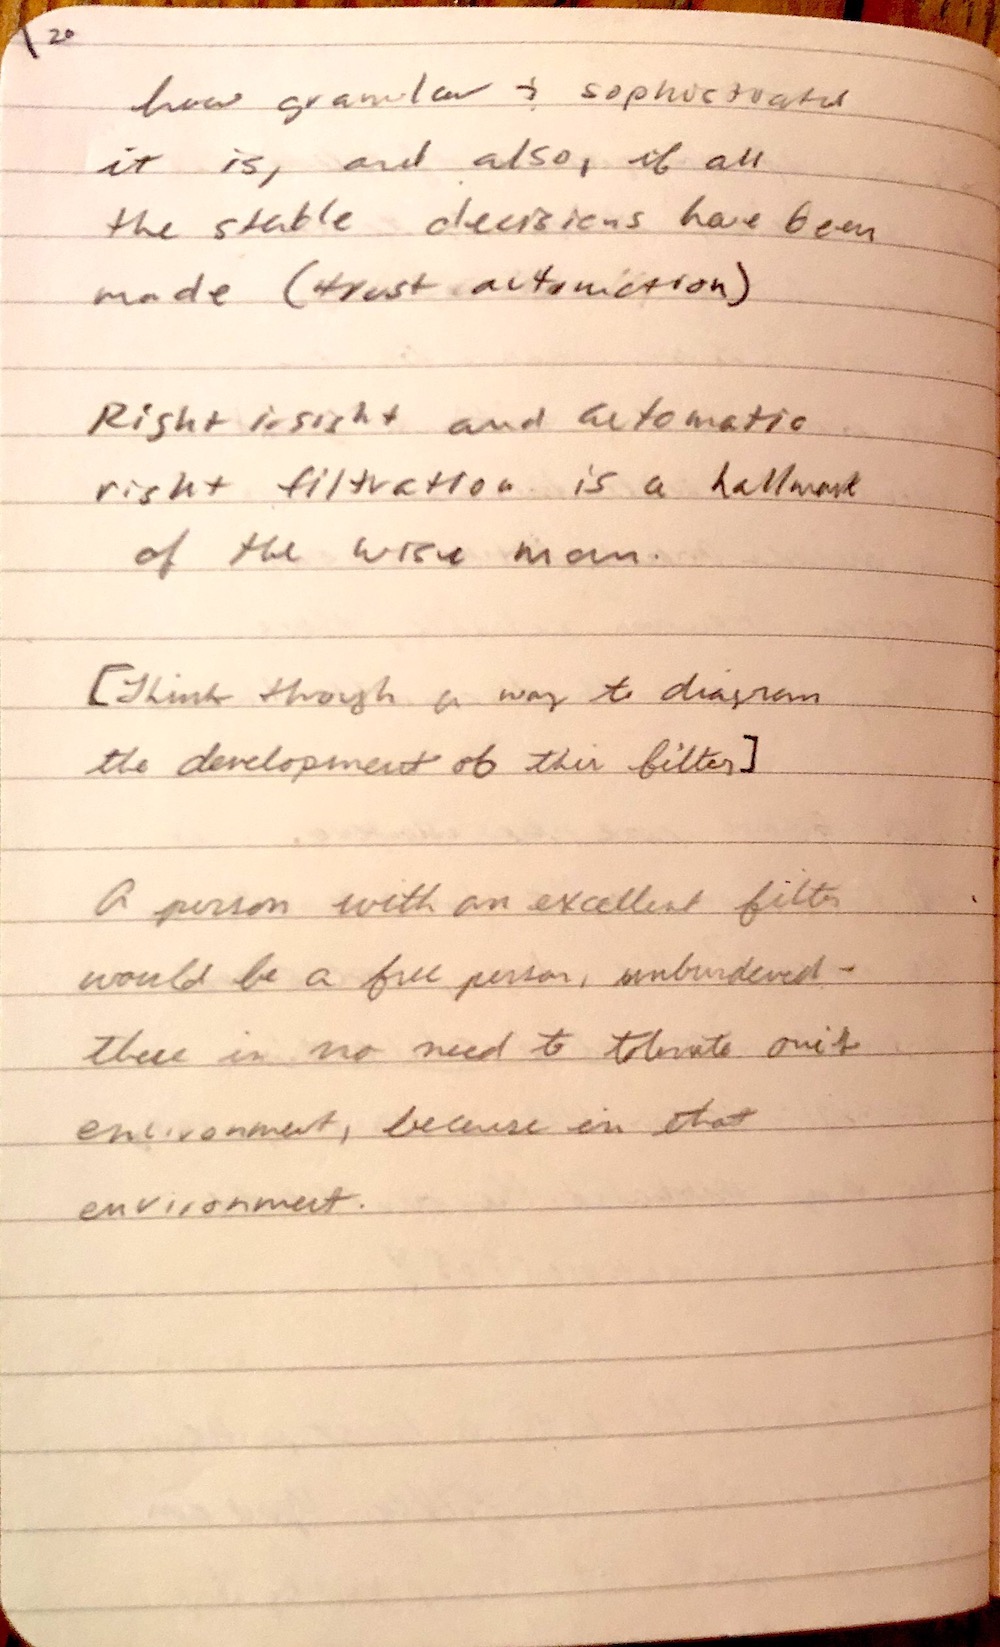 20
how granular & sophisticated
it is, and also, if all
the stable decisions have been
made (trust automiction)
Right insight and automatic
right filtration is a hallmark
of the wise man.
[Think though a way to diagram
the development of this filter]
A person with an excellent filter
would be a free person, unburdened -
there is no need to tolerate one's
environment, because in that
environment.